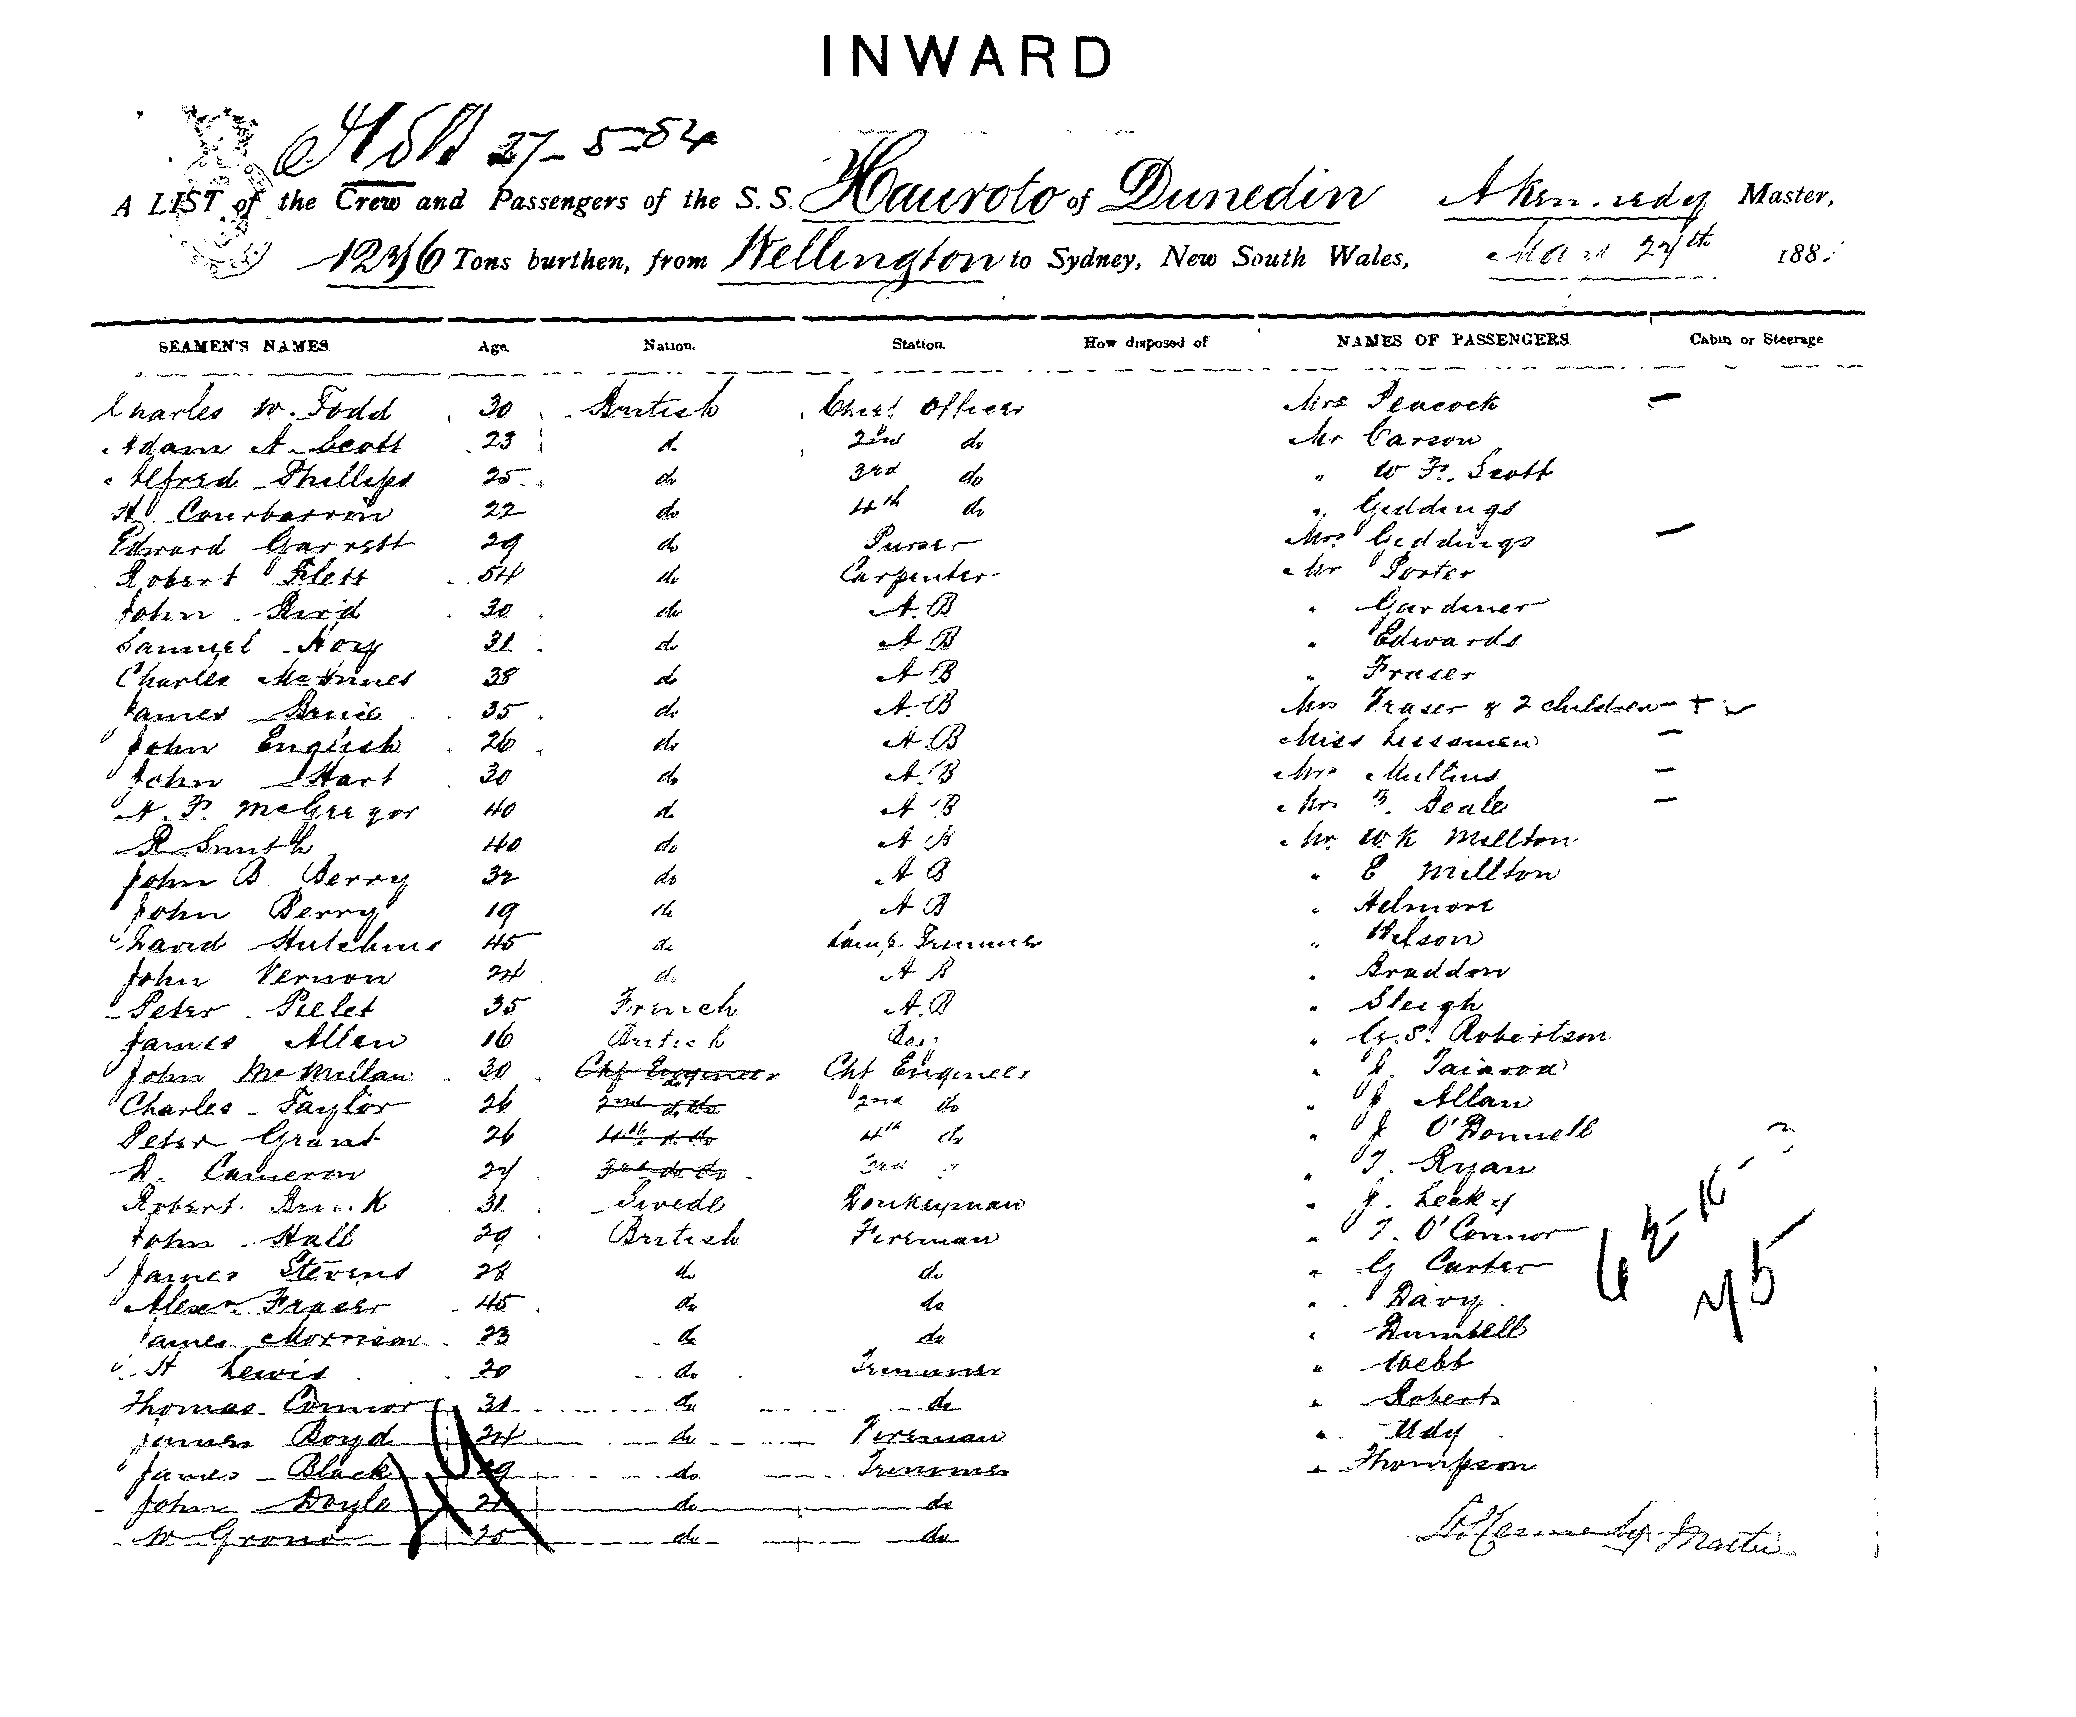 INWARD
27-5-84
A LIST of the Crew and Passengers of the S.S. Hauroto of Dunedin A Kennedy Master,
1276 Tons burthen, from Wellington to Sydney, New South Wales, 27th 188
SEAMEN'S NAMES Age. Nation. Station. How disposed of NAMES OF PASSENGERS Cabin or Steerage
Charles W. Todd 30 British Chief Officer Mrs Peacock —
Adam A. Scott 23 do 2nd do Mr Carson
Alfred Phillips 25 do 3rd do " W F. Scott
H. Courbarron 22 do 4th do " Giddings
Edward Garrett 29 do Purser Mrs Giddings —
Robert Flett 54 do Carpenter Mr Porter
John Reid 30 do A.B " Gardiner
Samuel Hoy 31 do A B " Edwards
Charles McInnes 38 do A B " Fraser
James Bruce 35 do A.B Mrs Fraser & 2 children — +
John English 26 do A.B Miss Lissamen —
John Hart 30 do A.B Mrs Mullins —
A. F. McGregor 40 do A B Mrs F. Beale —
R Smith 40 do A B Mr W K Millton
John B Berry 32 do A B " E Millton
John Berry 19 do A B " Aelmore
David Hutchins 45 do Lamp Trimmer " Wilson
John Vernon 24 do A B " Braddon
Peter Pillet 35 French A.B " Sleigh
James Allen 16 British Boy " G.S. Robertson
John McMillan 30 Chf Engineer Chf Engineer " J. Taiaroa
Charles Taylor 26 2nd do do 2nd do " J Allan
Peter Grant 26 4th do do 4th do " J O'Donnell
D. Cameron 27 3rd do do 3rd " " T. Ryan
Robert 31 Swede Donkeyman " J. Leeky
John Hall 29 British Fireman " T. O'Connor
James Stevens 28 do do " G Carter
Alexr Fraser 45 do do " Davy
James Morrison 23 do do " Dumbell
H Lewis 20 do Trimmer " Webb
Thomas Connor 31 do do " Roberts
James Boyd 24 do Fireman " Udy
James Black 29 do Trimmer " Thompson
John Doyle 21 do do
W Grono 25 do do
A. Kennedy Master